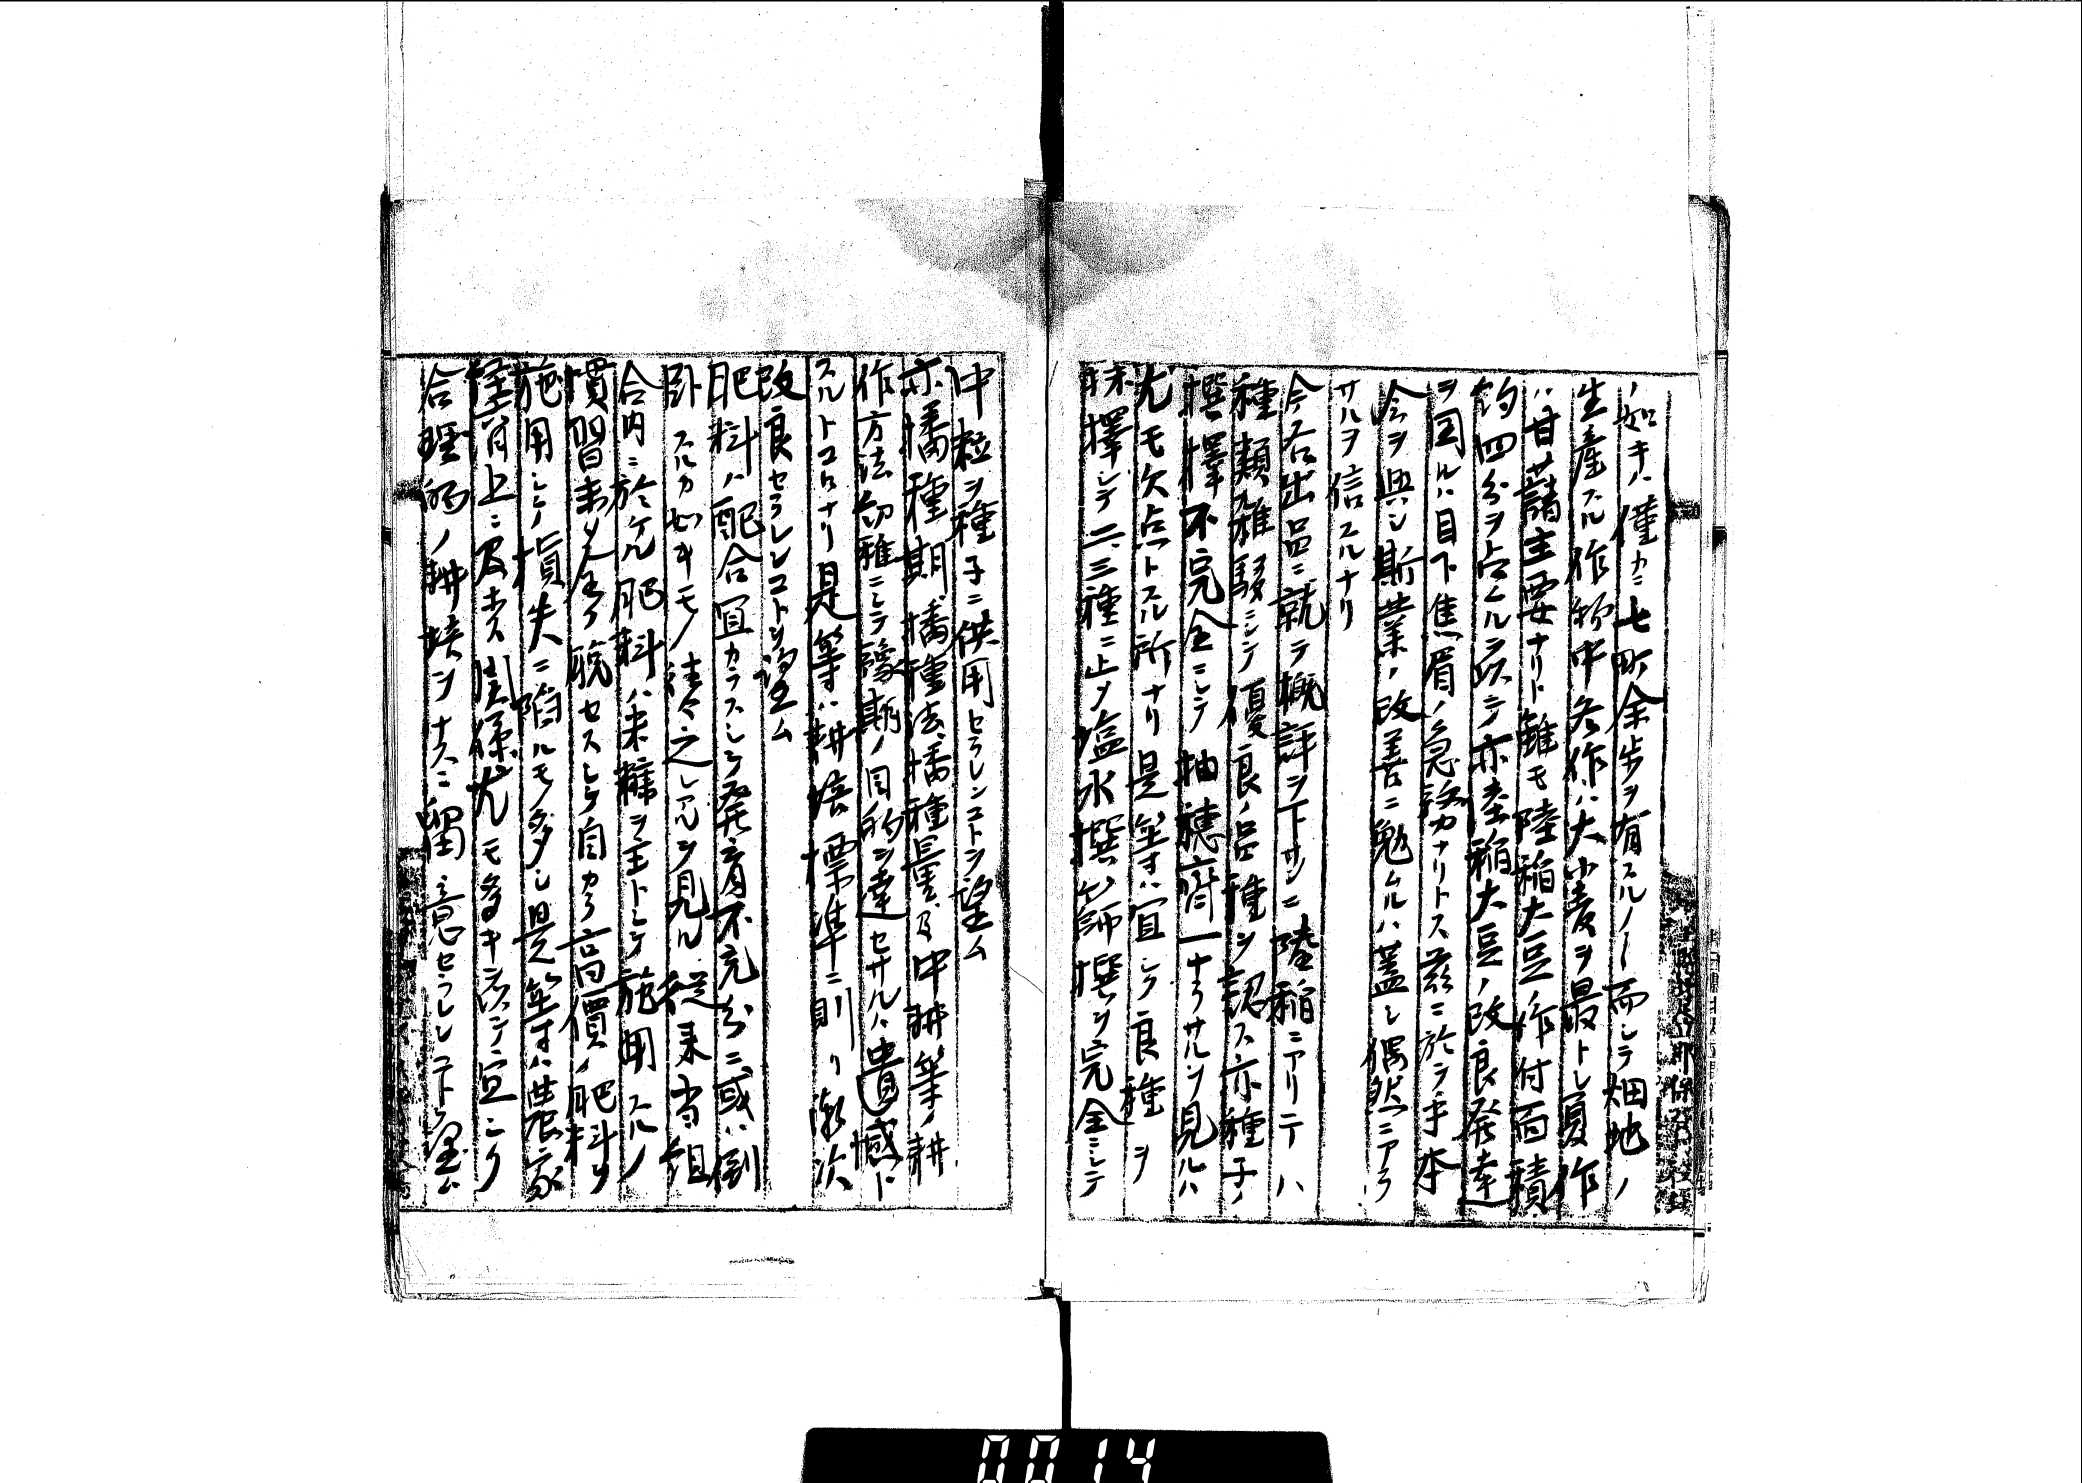 ノ如キハ僅カニ七町余歩ヲ有スルノミ而シテ畑地ノ
生産スル作物中冬作ハ大小麦ヲ最トシ夏作
ハ甘藷主要ナリト雖モ陸稲大豆ノ作付面積
約四分ヲ占ムル以テ亦陸稲大豆ノ改良発達
ヲ図ルハ目下焦眉ノ急務ナリトス茲ニ於テ乎本
会ヲ興シ斯業ノ改善ニ勉ムルハ蓋シ偶然ニアラ
サルヲ信スルナリ
今右出品ニ就テ概評ヲ下サンニ陸稲ニアリテハ
種類雑駁ニシテ優良ノ品種ヲ認ス亦種子ノ
撰択不完全ニシテ抽穂齊一ナラサルヲ見ルハ
尤モ欠点トスル所ナリ是等ハ宜シク良種ヲ
採擇シテ二三種ニ止メ塩水撰篩撰ヲ完全ニシテ
中粒ヲ種子ニ供用セラレンコトヲ望ム
亦播種期播種法播種量及中耕等ノ耕
作方法幼稚ニシテ豫期ノ目的ヲ達セサルハ遺憾ト
スルトコロナリ是等ハ耕培標準ニ則リ漸次
改良セラレンコトヲ望ム
肥料ハ配合宜カラスシテ発育不充分ニ或ハ倒
卧スルカ如キモノ往々之レアルヲ見ル従来当組
合内ニ於ケル肥料ハ米糠ヲ主トシテ施用スルノ
慣習未タ全ク脱セスシテ自カラ高價ノ肥料ヲ
施用シテ損失ニ陥ルモ多シ是等ハ農家
経済上ニ及ホス関係尤モ多キヲ以テ宜シク
合理的ノ耕培ヲナスニ留意セラレンコトヲ望ム
0014